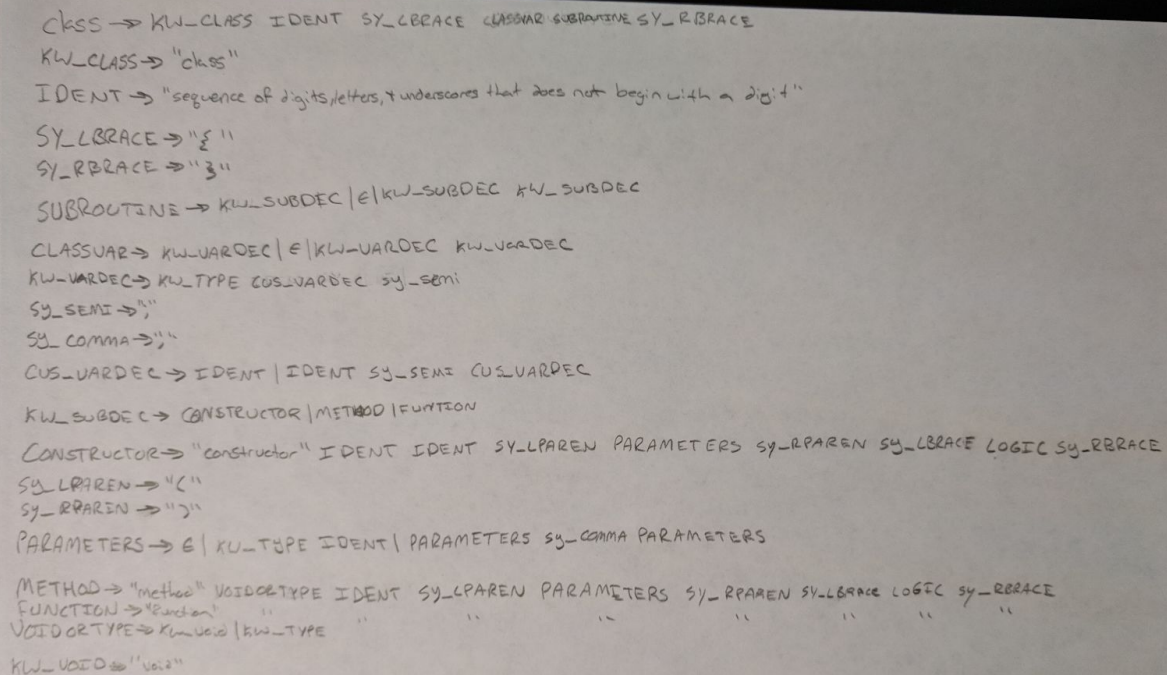 class → KW_CLASS IDENT SY_LBRACE CLASSVAR SUBROUTINE SY_RBRACE
KW_CLASS → "class"
IDENT → "sequence of digits, letters, + underscores that does not begin with a digit"
SY_LBRACE → "{"
SY_RBRACE → "}"
SUBROUTINE → KW_SUBDEC | ∈ | KW_SUBDEC KW_SUBDEC
CLASSVAR → KW_VARDEC | ∈ | KW_VARDEC KW_VARDEC
KW_VARDEC → KW_TYPE CUS_VARDEC sy_semi
SY_SEMI → ";"
SY_COMMA → ","
CUS_VARDEC → IDENT | IDENT SY_SEMI CUS_VARDEC
KW_SUBDEC → CONSTRUCTOR | METHOD | FUNTION
CONSTRUCTOR → "constructor" IDENT IDENT SY_LPAREN PARAMETERS SY_RPAREN SY_LBRACE LOGIC SY_RBRACE
SY_LPAREN → "("
SY_RPAREN → ")"
PARAMETERS → ∈ | KW_TYPE IDENT | PARAMETERS SY_COMMA PARAMETERS
METHOD → "method" VOIDORTYPE IDENT SY_LPAREN PARAMETERS SY_RPAREN SY_LBRACE LOGIC SY_RBRACE
FUNCTION → "Function" " " " " " " " "
VOIDORTYPE → KW_void | KW_TYPE
KW_VOID → "void"